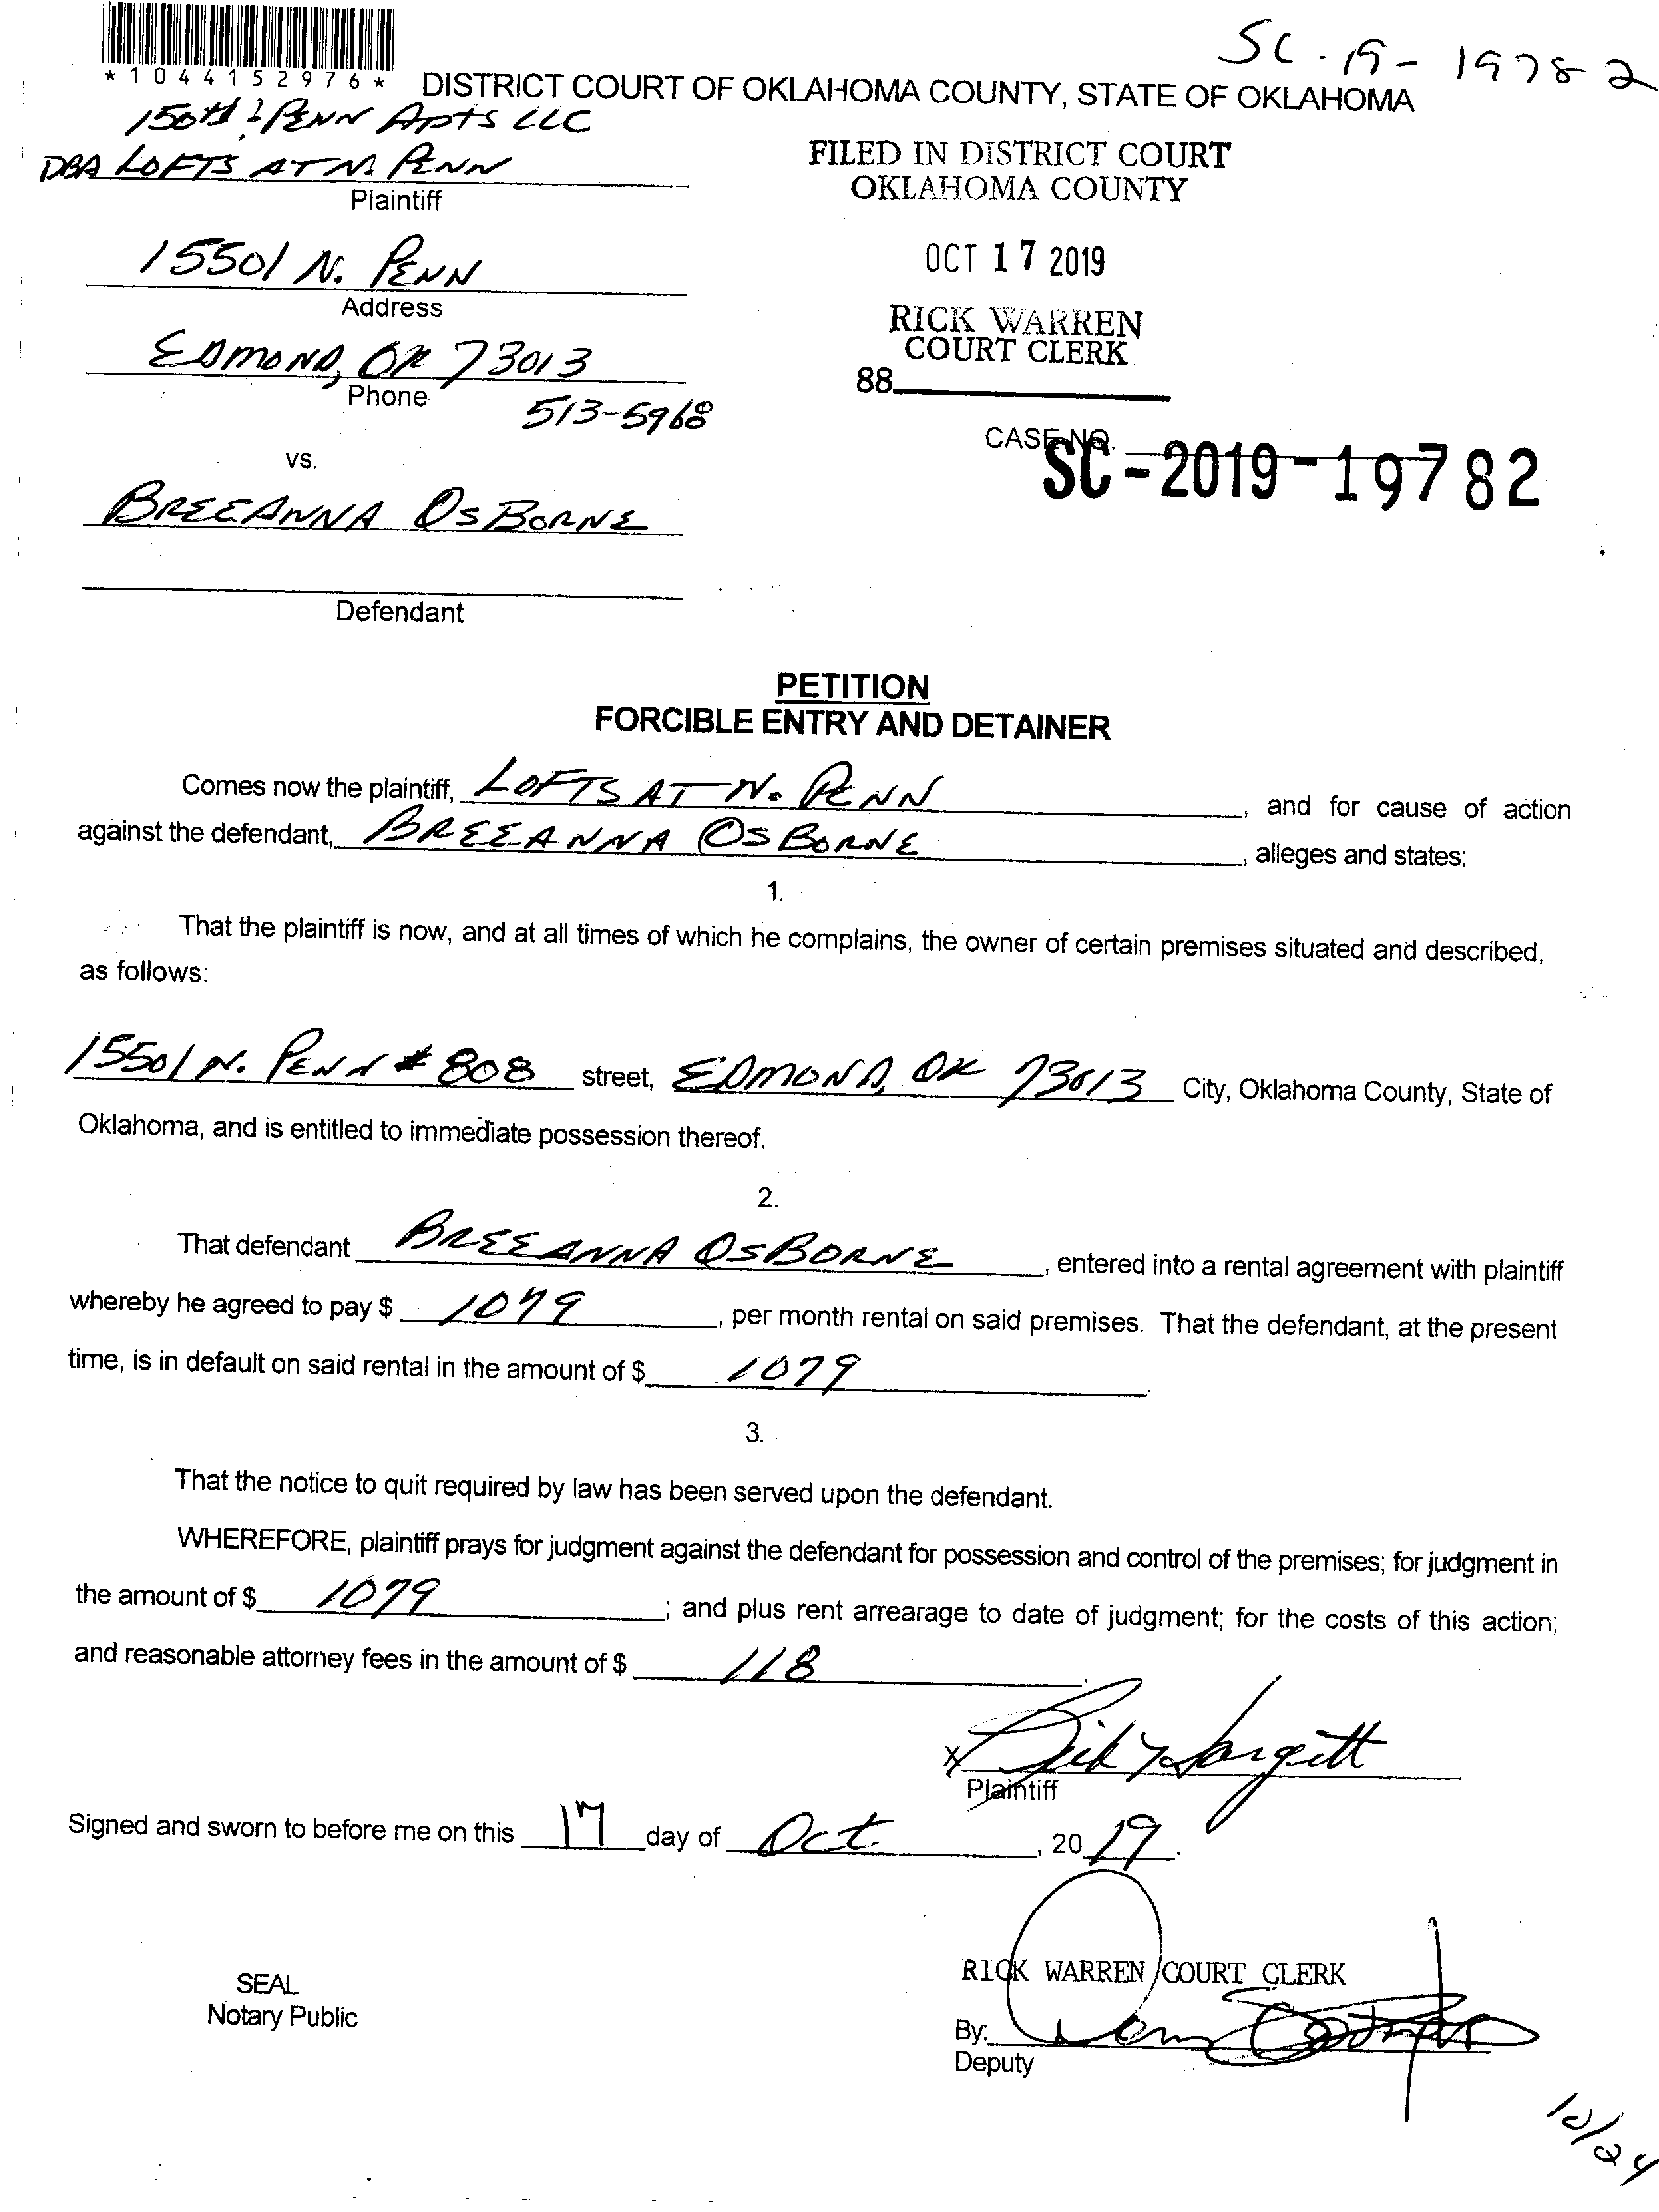 SC-19-19782
*1044152976*
DISTRICT COURT OF OKLAHOMA COUNTY, STATE OF OKLAHOMA
150th & PENN Apts LLC
DBA LOFTS AT N. PENN
Plaintiff
FILED IN DISTRICT COURT
OKLAHOMA COUNTY
15501 N. PENN
Address
OCT 17 2019
EDMOND, OK 73013
Phone
513-5968
RICK WARREN
COURT CLERK
88
vs.
CASE NO.
SC-2019-19782
BREEANNA OSBORNE
Defendant
PETITION
FORCIBLE ENTRY AND DETAINER
Comes now the plaintiff, LOFTS AT N. PENN, and for cause of action
against the defendant, BREEANNA OSBORNE, alleges and states:
1.
That the plaintiff is now, and at all times of which he complains, the owner of certain premises situated and described,
as follows:
15501 N. PENN # 808 street, EDMOND, OK 73013 City, Oklahoma County, State of
Oklahoma, and is entitled to immediate possession thereof.
2.
That defendant BREEANNA OSBORNE, entered into a rental agreement with plaintiff
whereby he agreed to pay $ 1079, per month rental on said premises. That the defendant, at the present
time, is in default on said rental in the amount of $ 1079
3.
That the notice to quit required by law has been served upon the defendant.
WHEREFORE, plaintiff prays for judgment against the defendant for possession and control of the premises; for judgment in
the amount of $ 1079; and plus rent arrearage to date of judgment; for the costs of this action;
and reasonable attorney fees in the amount of $ 118.
X
Plaintiff
Signed and sworn to before me on this 17 day of Oct, 2019.
SEAL
Notary Public
RICK WARREN COURT CLERK
By:
Deputy
10/24